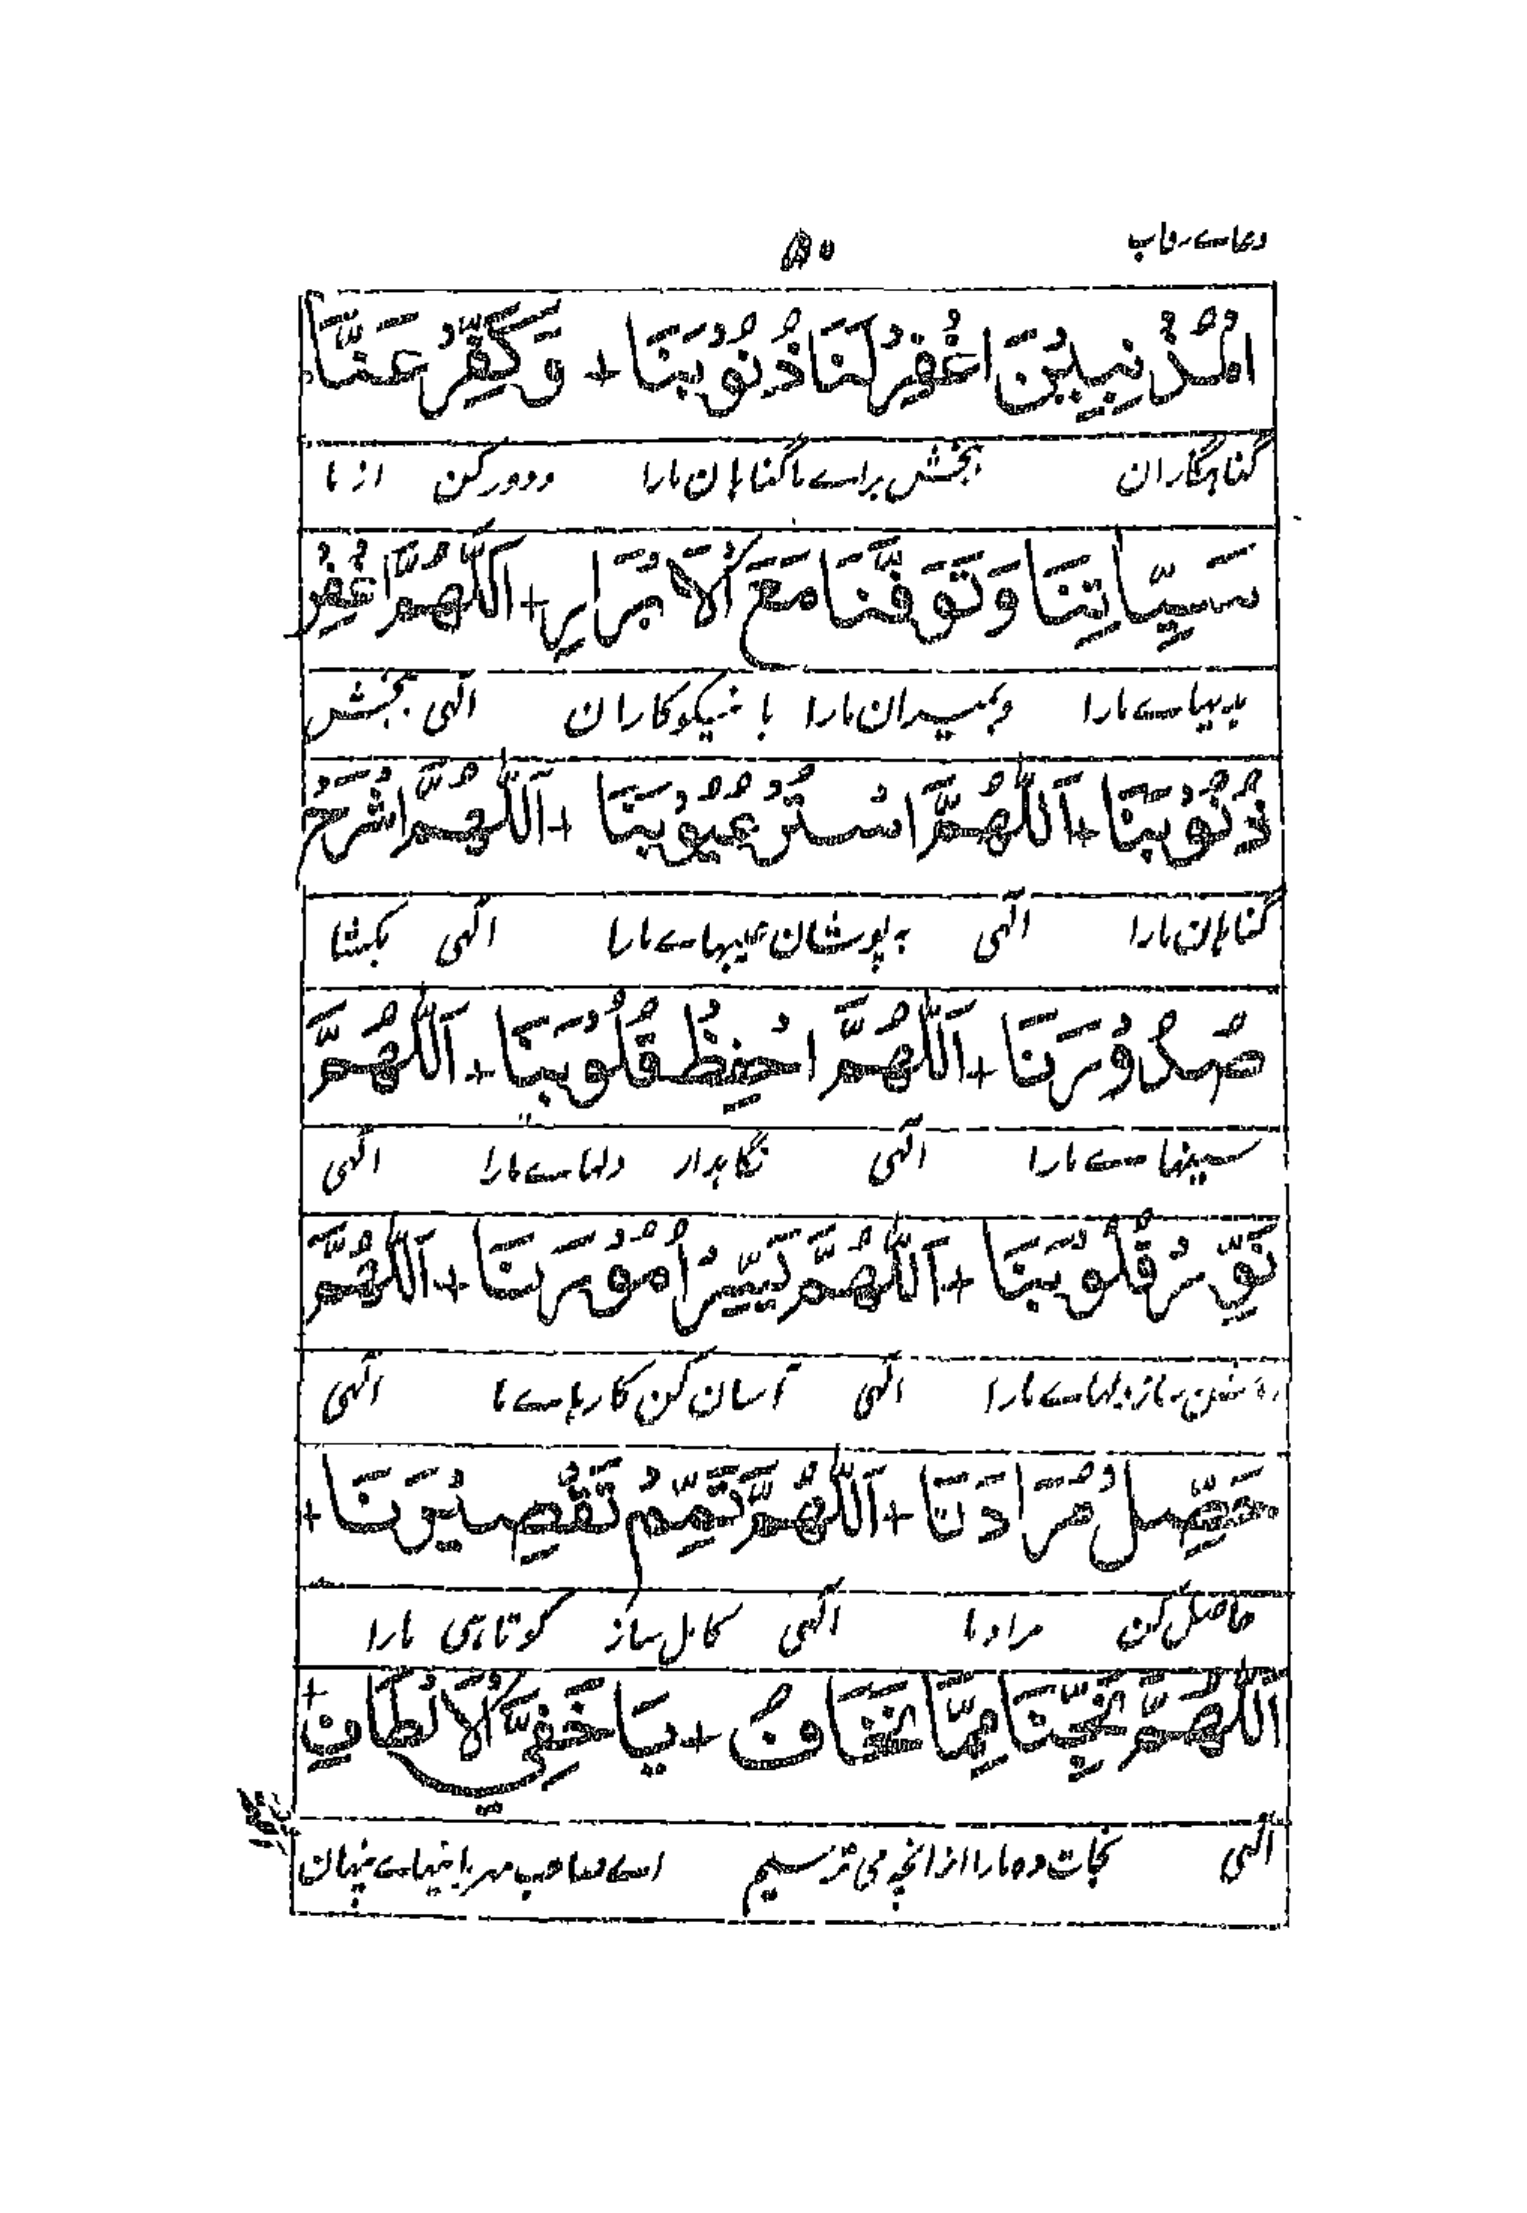 دعاے رقاب ۵۰
الْمُذْنِبِيْنَ اغْفِرْ لَنَا ذُنُوْبَنَا + وَكَفِّرْ عَنَّا
گناہگاران بخش براے ما گناہان مارا ودور کن از ما
سَيِّاٰتِنَا وَتَوَفَّنَا مَعَ الْاَبْرَارِ + اَللّٰهُمَّ اغْفِرْ
بدیہاے مارا وبمیران مارا با نیکوکاران الٰہی بخش
ذُنُوْبَنَا + اَللّٰهُمَّ اسْتُرْ عُيُوْبَنَا + اَللّٰهُمَّ اشْرَحْ
گناہان مارا الٰہی بہ پوشان عیبہاے مارا الٰہی بکشا
صُدُوْرَنَا + اَللّٰهُمَّ احْفِظْ قُلُوْبَنَا + اَللّٰهُمَّ
سینہاے مارا الٰہی نگاہدار دلہاے مارا الٰہی
نَوِّرْ قُلُوْبَنَا + اَللّٰهُمَّ يَسِّرْ اُمُوْرَنَا + اَللّٰهُمَّ
روشن ساز دلہاے مارا الٰہی آسان کن کارہاے ما الٰہی
حَصِّلْ مُرَادَنَا + اَللّٰهُمَّ تَمِّمْ تَقْصِيْرَنَا +
حاصل کن مراد ما الٰہی کامل ساز کوتاہی مارا
اَللّٰهُمَّ نَجِّنَا مِمَّا نَخَافُ + يَا خَفِيَّ الْاَلْطَافِ +
الٰہی نجات دہ مارا از انچہ می ترسیم اے صاحب مہربانیہاے پنہان